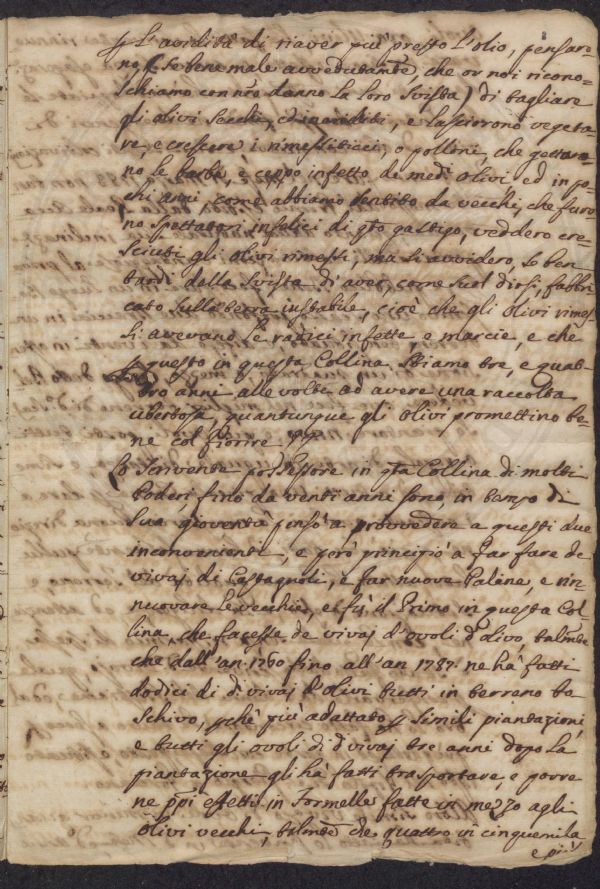 P L'avidità di riaver più presto l'olio, pensaro=
no, (Se bene male avvedutam.te, che or noi ricono=
schiamo con nr̃o danno la loro Svista) di tagliare
gli olivi secchi, ed inariditi, e lasciorono vegeta=
re, e crescere i rimestiticci, o polloni, che gettaro=
no le barbe, e ceppo infetto de med.i olivi ed in po=
chi anni, come abbiamo sentito da vecchi, che furo=
no spettatori infelici di q̃to gastigo, veddero cre=
sciuti gli olivi rimessi, ma si avviddero, se ben
tardi della Svista di aver, come suol dirsi, fabbri=
cato sulla terra instabile, cioè che gli olivi rimes=
si avevano le radici infette, e marcie, e che
p questo in questa Collina Stiamo tre, e quat=
tro anni alle volte ad avere una raccolta
ubertosa, quantunque gli olivi promettino be=
ne col fiorire
Lo Scrivente possessore in q̃ta Collina di molti
Poderi, fino da venti anni sono, in tempo di
sua gioventù pensò a provvedere a questi due
inconvenienti, e però principiò a far fare de
vivaj di Castagnoli, e far nuove Paline, e rin=
nuovare le vecchie, e fù il Primo in questa Col=
lina, che facesse de vivaj d'ovoli d'olivo, talm.te
che dall'an: 1760 fino all'an 1787. ne hà fatti
dodici di d.i vivaj d'olivi tutti in terreno bo
schivo, p̃chè più adattato p simili piantazioni,
e tutti gli ovoli di d.i vivaj tre anni dopo la
piantazione gli hà fatti trasportare, e porre
ne p̃p̃i effetti in Formelle fatte in mezzo agli
olivi vecchi, talm.te che quattro in cinquemila
e più